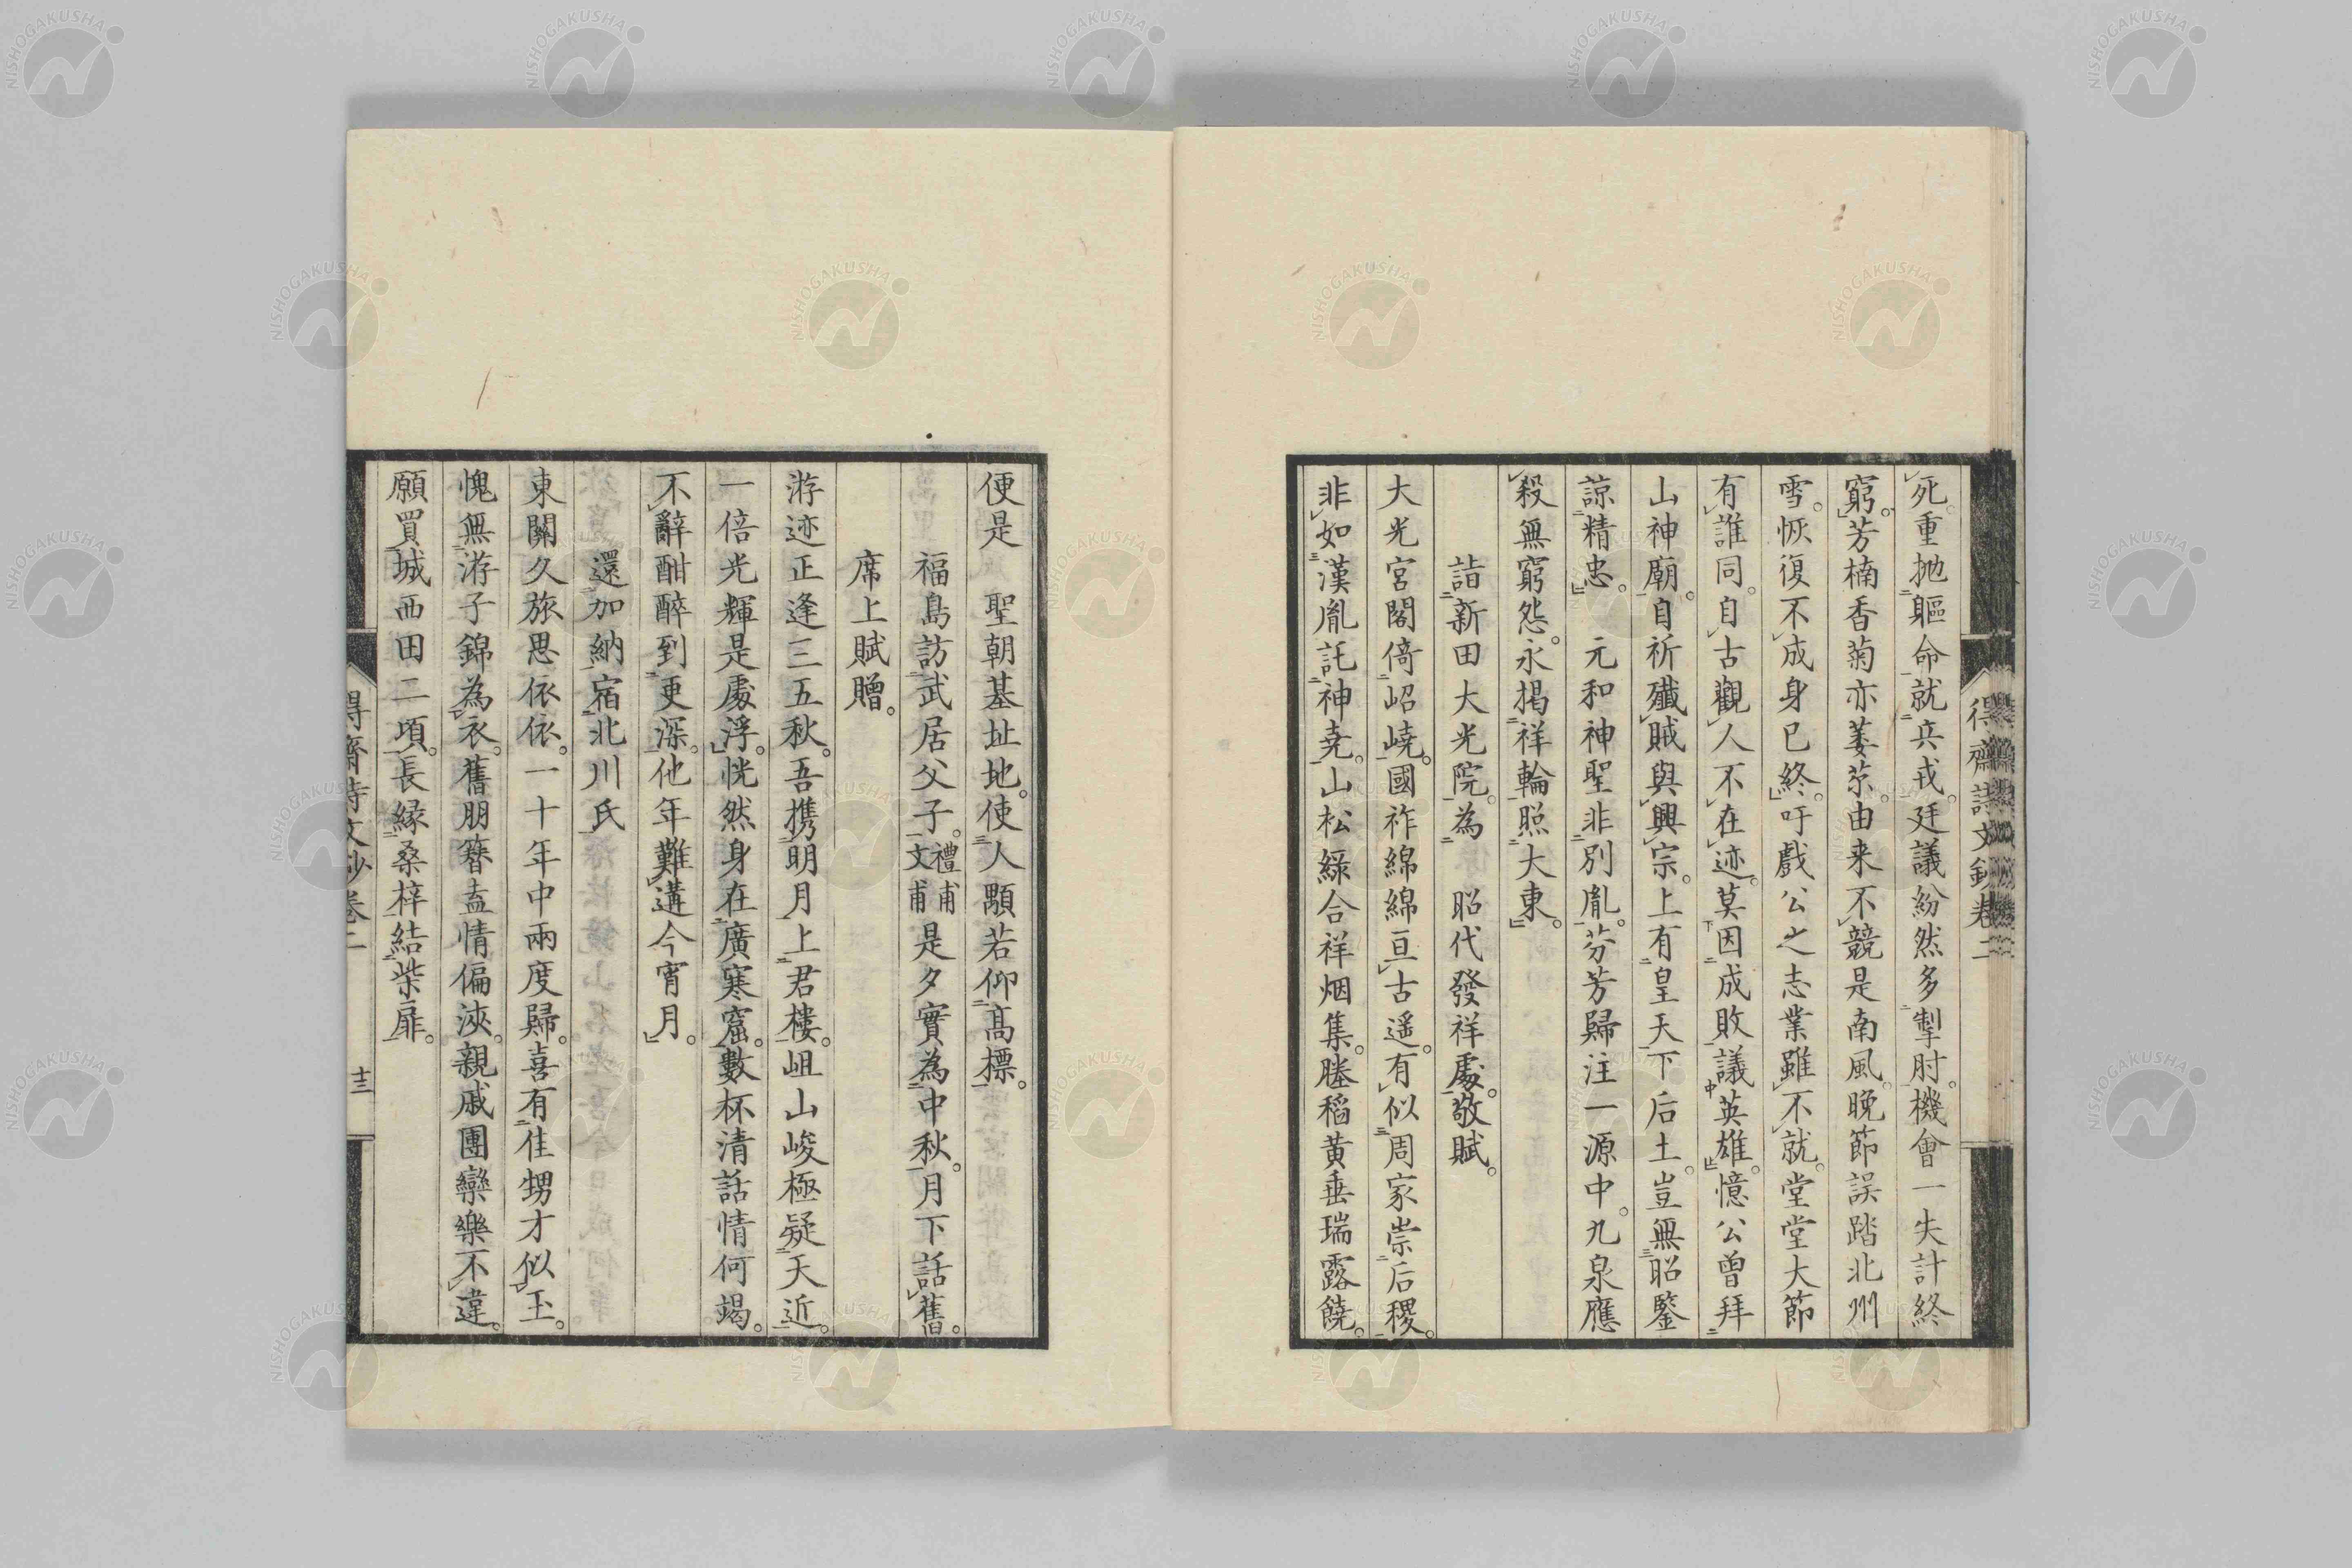 得齋詩文鈔卷二
死重拋軀命就兵戎。廷議紛然多掣肘。機會一失計終
窮。芳楠香菊亦萎苶。由来不競是南風。晚節誤踏北州
雪。恢復不成身已終。吁戲公之志業雖不就。堂堂大節
有誰同。自古觀人不在迹。莫因成敗議英雄。憶公曾拜
山神廟。自祈殲賊與興宗。上有皇天下后土。豈無昭鑒
諒精忠。元和神聖非別胤。芬芳歸注一源中。九泉應
殺無窮怨。永揭祥輪照大東。
詣新田大光院。為昭代發祥處。敬賦。
大光宮閣倚岧嶢。國祚綿綿亘古遥。有似周家崇后稷。
非如漢胤託神堯。山松綠合祥烟集。塍稻黄垂瑞露饒。
便是聖朝基址地。使人顒若仰高標。
福島訪武居父子。禮甫文甫是夕實為中秋。月下話舊。
席上賦贈。
游迹正逢三五秋。吾携明月上君樓。岨山峻極疑天近。
一倍光輝是處浮。恍然身在廣寒窟。數杯清話情何竭。
不辭酣醉到更深。他年難遘今宵月。
還加納宿北川氏
東關久旅思依依。一十年中兩度歸。喜有佳甥才似玉。
愧無游子錦為衣。舊朋簪盍情偏浹。親戚團欒樂不違。
願買城西田二頃。長緣桑梓結柴扉。
得齋詩文鈔卷二
十三